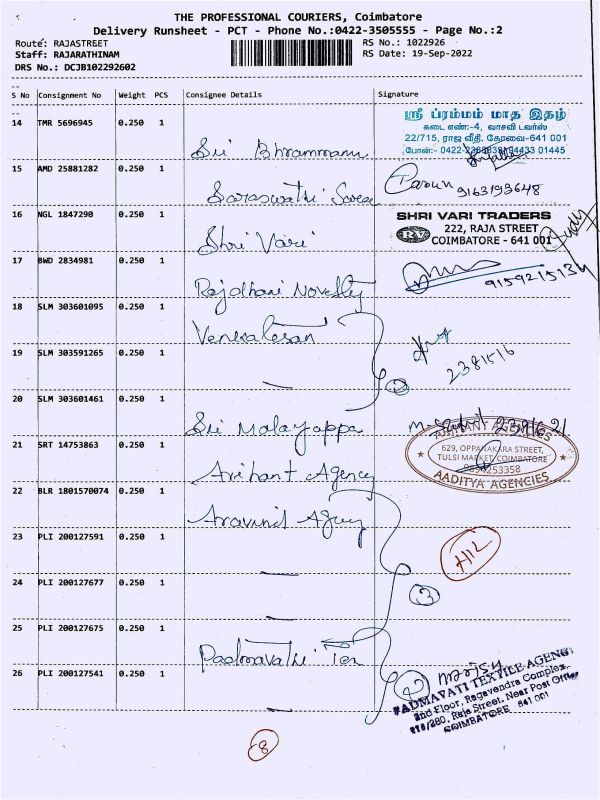 THE PROFESSIONAL COURIERS, Coimbatore
Delivery Runsheet - PCT - Phone No.:0422-3505555 - Page No.:2
Route: RAJASTREET
RS No.: 1022926
Staff: RAJARATHINAM
RS Date: 19-Sep-2022
DRS No.: DCJB102292602
S No Consignment No Weight PCS Consignee Details Signature
14 TMR 5696945 0.250 1 Sri Bhrammam
ஸ்ரீ ப்ரம்மம் மாத இதழ்
கடை எண்:-4, வாசவி டவர்ஸ்
22/715, ராஜ வீதி, கோவை-641 001
போன்:- 0422-2380838 94433 01445
15 AMD 25881282 0.250 1 Saraswathi Saree
9163193648
16 NGL 1847290 0.250 1 Shri Vari
SHRI VARI TRADERS
222, RAJA STREET
COIMBATORE - 641 001
17 BWD 2834981 0.250 1 Rajdhani Novelty
9159215134
18 SLM 303601095 0.250 1 Venkatesan
19 SLM 303591265 0.250 1
2381516
2
20 SLM 303601461 0.250 1 Sri Malayappa
21 SRT 14753863 0.250 1 Arihant Agency
ARIHANT AGENCIES
629, OPPANAKARA STREET,
TULSI MARKET, COIMBATORE
AADITYA AGENCIES
22 BLR 1801570074 0.250 1 Aravind Agency
23 PLI 200127591 0.250 1
24 PLI 200127677 0.250 1
3
25 PLI 200127675 0.250 1 Padmavathi Tex
26 PLI 200127541 0.250 1
2
PADMAVATI TEXTILE AGENCY
2nd Floor, Ragavendra Complex,
Raja Street, Near Post Office
COIMBATORE 641 001
8